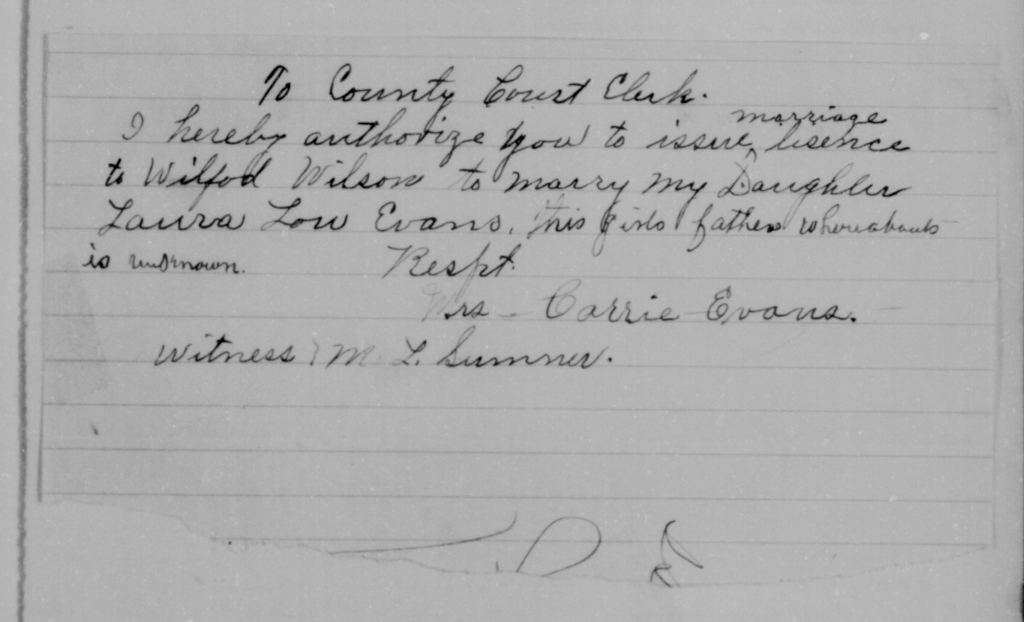 To County Court Clerk.
I hereby authorize you to issue marriage lisence
to Wilfod Wilson to marry my Daughter
Laura Lou Evans, this girls fathers whereabouts
is unknown. Respt.
Mrs - Carrie Evans. -
Witness M L. Sumner.